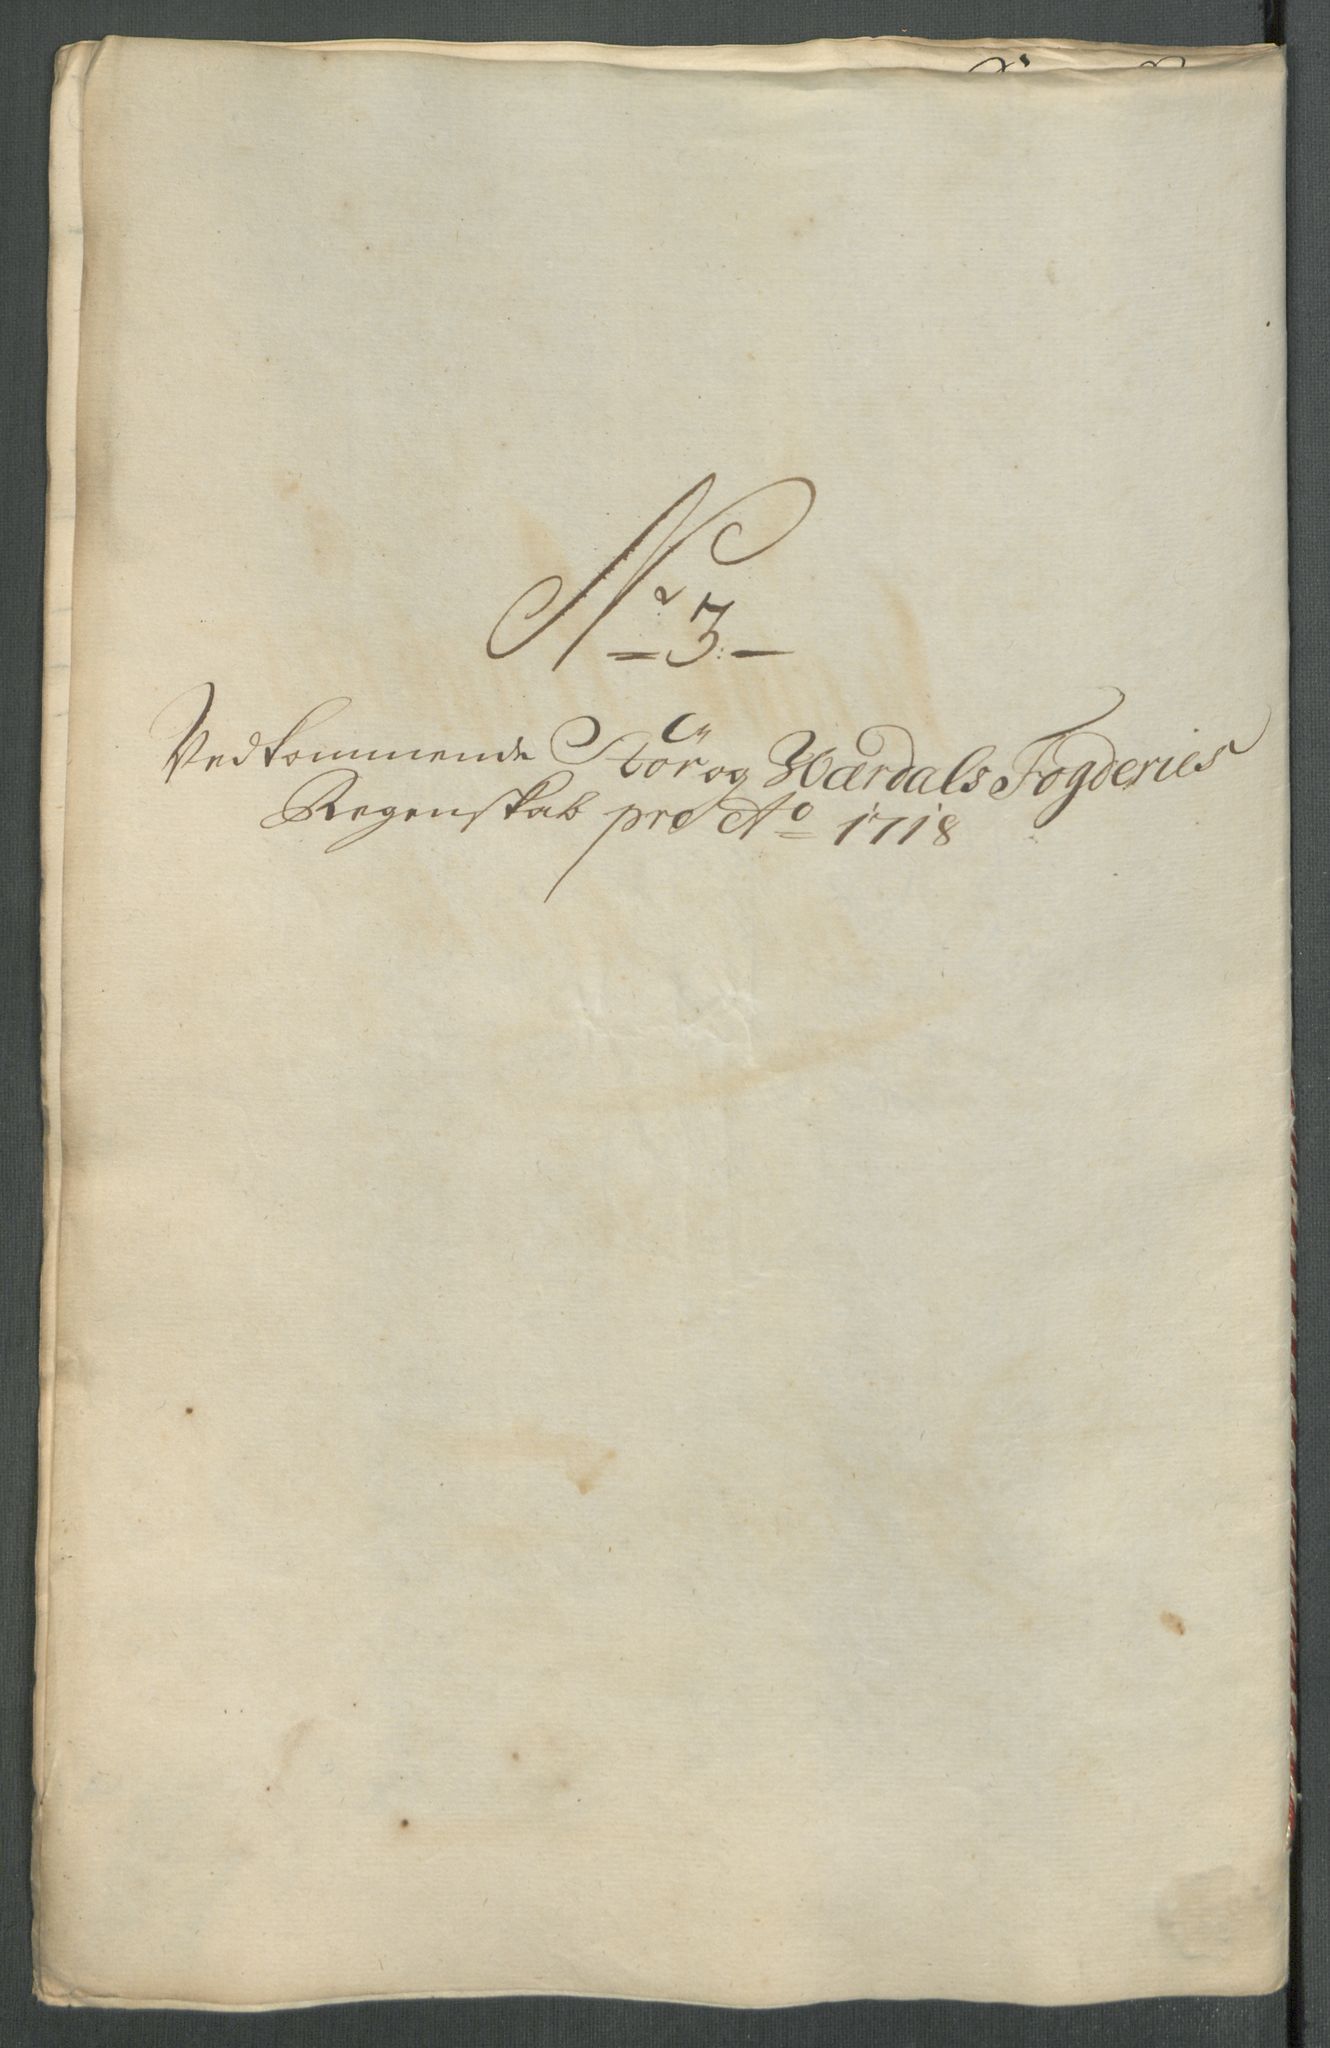 N:r 3.
Vedkommende Stör og Værdals Fogderies
Regenskab pro Ao 1718